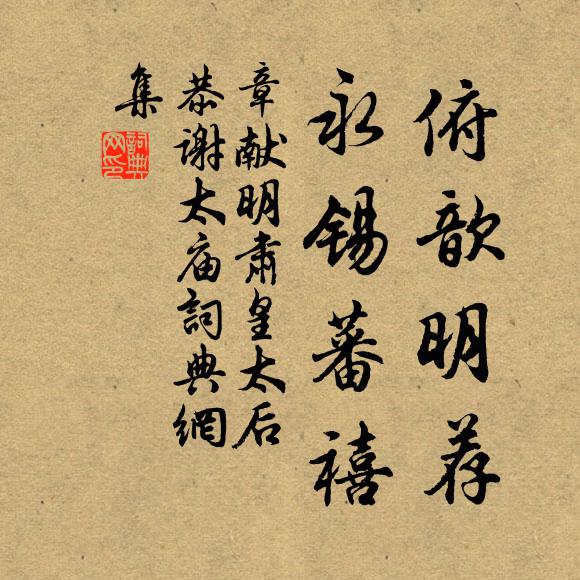 俯歆明荐
永锡蕃禧
章献明肃皇太后
恭谢太庙詞典網
集
詞典
网印